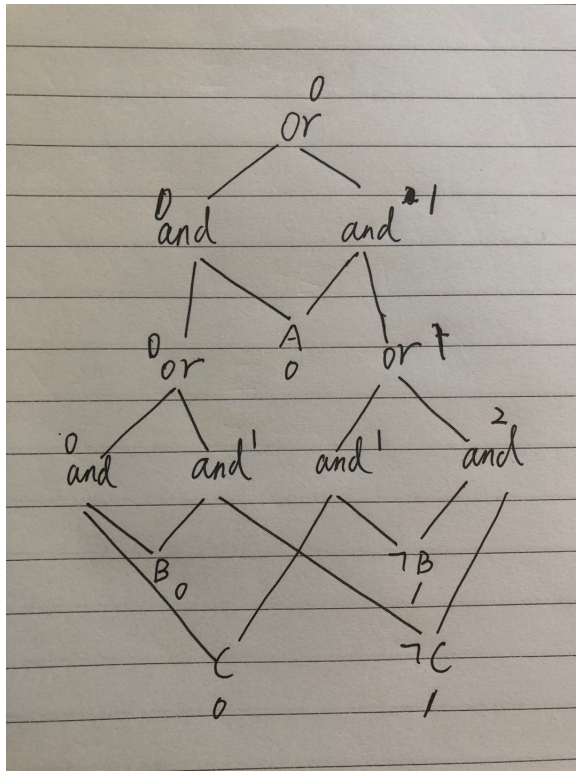 0
or
0 and and 1
0 or A or 1
0
0 and and 1 and 1 and 2
B 0 ¬B
1
C ¬C
0 1